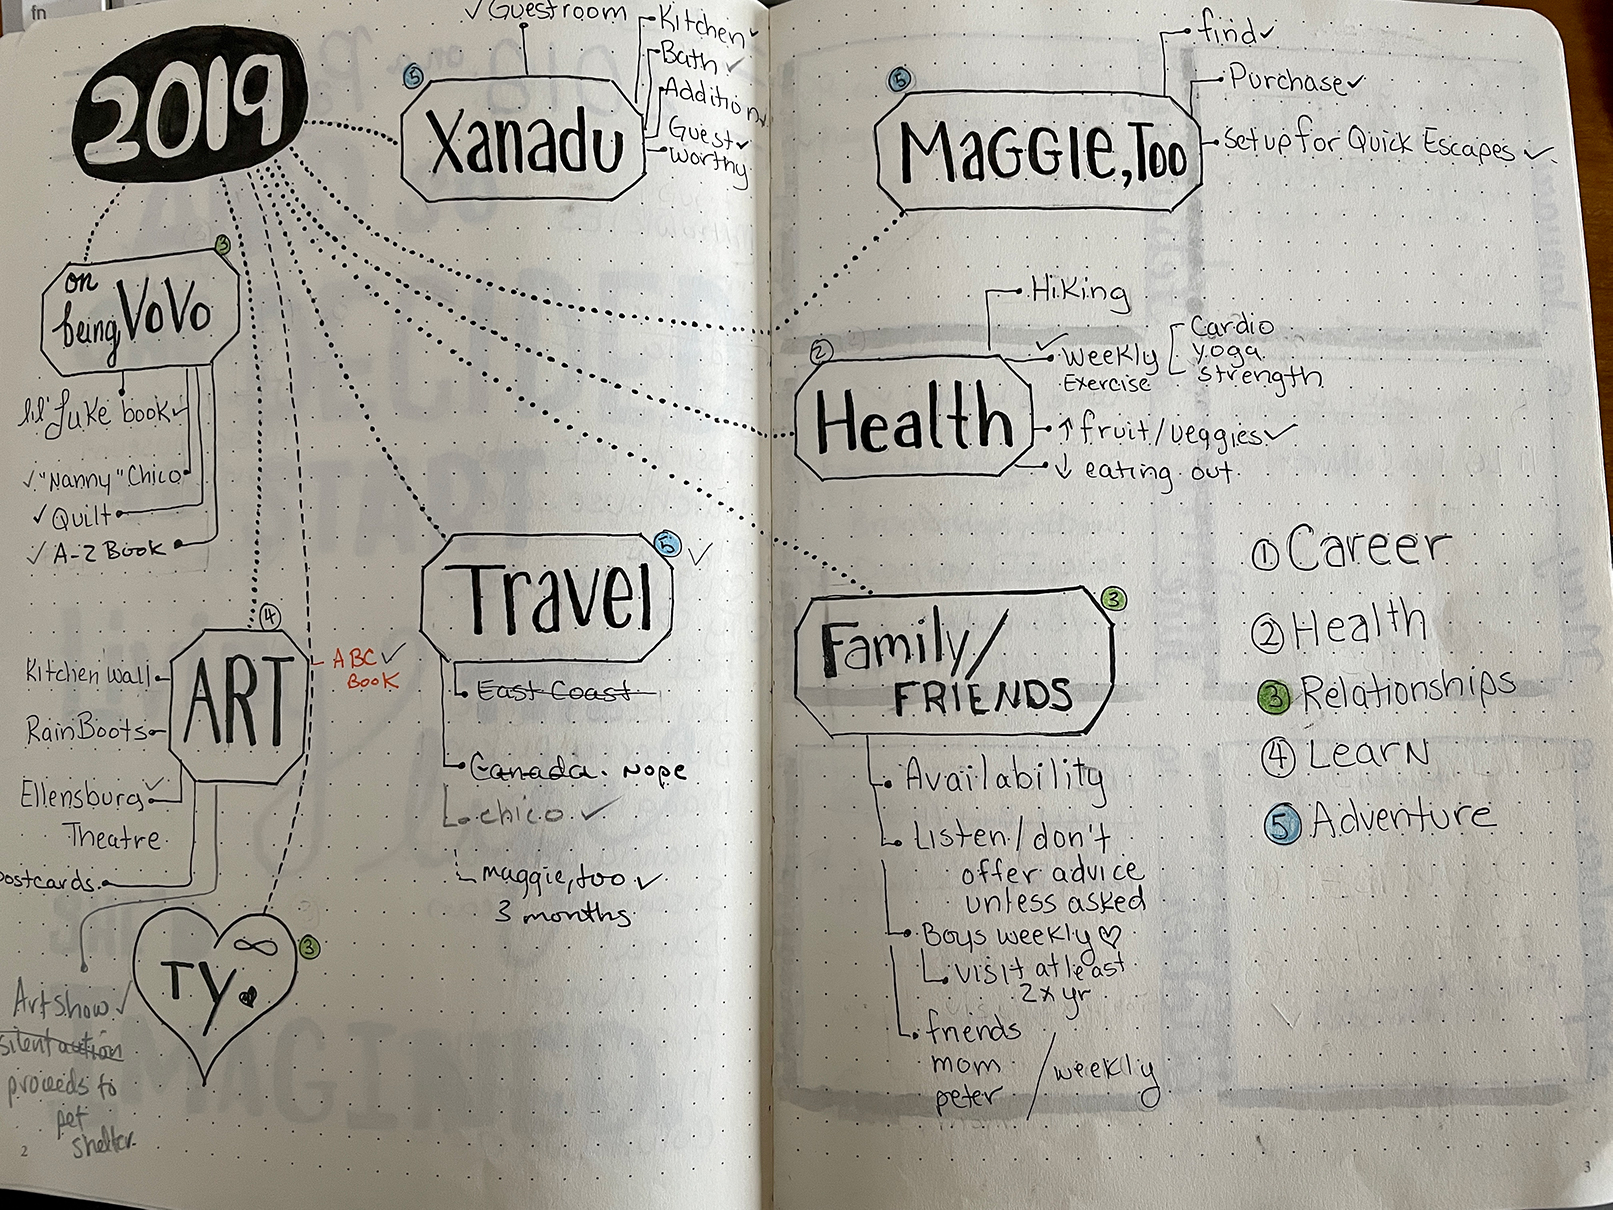 fn
2019
✓ Guestroom
Kitchen ✓
Bath ✓
Addition ✓
Guest ✓
worthy
5
Xanadu
on
being VoVo
3
lil' Luke book ✓
✓ "Nanny" Chico
✓ Quilt
✓ A-Z Book
4
ART
Kitchen wall
RainBoots
Ellensburg ✓
Theatre
postcards
ABC ✓
BOOK
Art show ✓
silent auction
proceeds to
pet
shelter
∞
TY.
3
Travel
5 ✓
East Coast
Canada. Nope
chico ✓
maggie, too ✓
3 months
2
5
MAGGIE, Too
find ✓
Purchase ✓
setup for Quick Escapes ✓
2
Health
Hiking
✓ weekly
Exercise
Cardio
yoga
strength
↑ fruit/veggies ✓
↓ eating out
3
Family/
FRIENDS
Availability
Listen/don't
offer advice
unless asked
Boys weekly ♡
visit at least
2x yr
friends
mom
peter
/ weekly
1 Career
2 Health
3 Relationships
4 Learn
5 Adventure
3